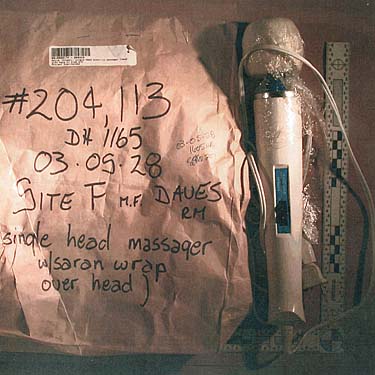 #204,113
DH 1165
03.09.28
SITE F M.F. DAVES
RM
single head massager
w/saran wrap
over head)